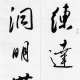 練達
洞明